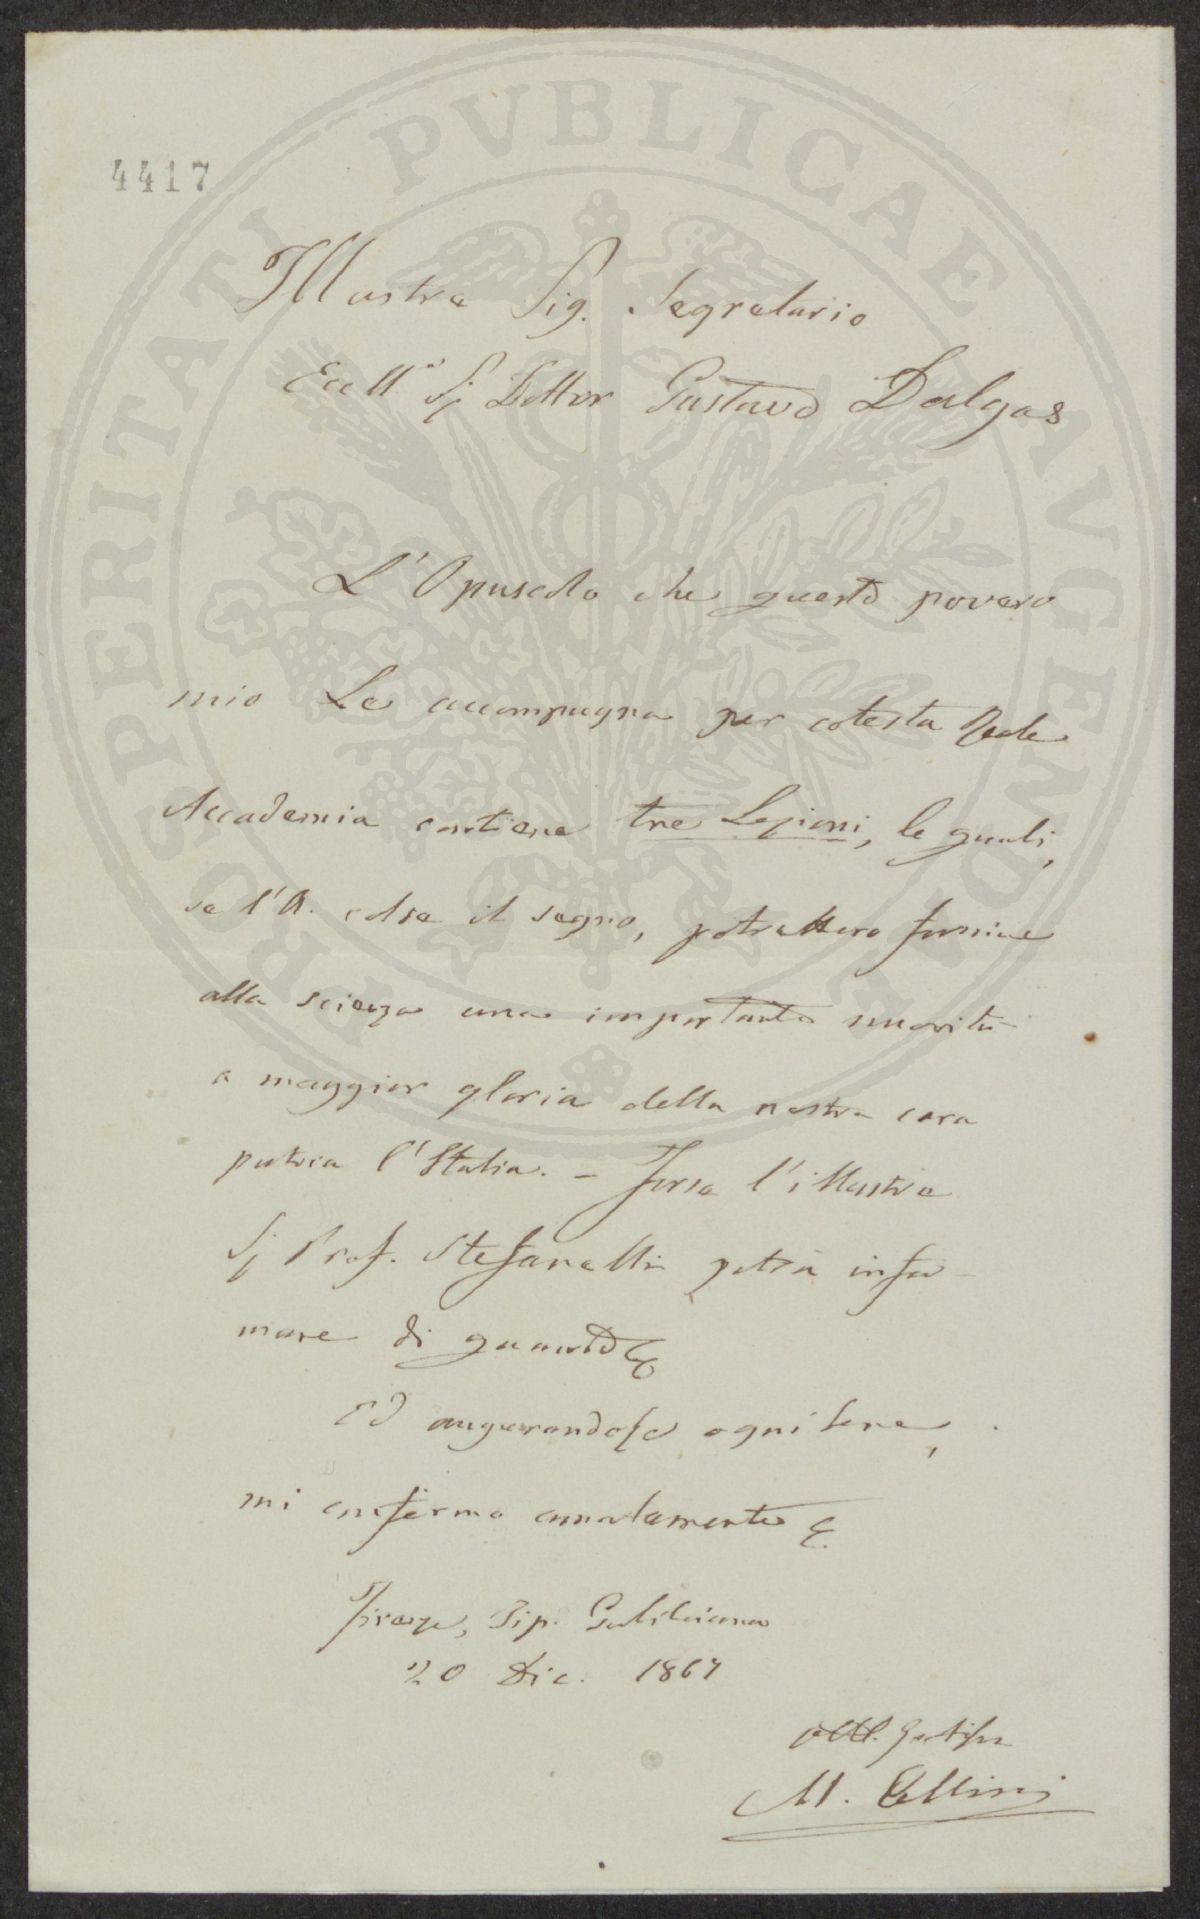 PROSPERITATI PVBLICAE AVGENDAE
4417
Illustre Sig. Segretario
Ecc.mo Sig Dottor Gustavo Dalgas
L'Opuscolo che questo povero
mio Le accompagna per cotesta Reale
Accademia contiene tre Lezioni, le quali,
se l'A. colse il segno, potrebbero fornire
alla scienza una importante novità
a maggior gloria della nostra cara
patria l'Italia. – Forse l'illustre
Sig Prof. Stefanelli potrà infor-
mare di quanto
Ed augurandole ogni bene,
mi confermo
Firenze, Tip. Galileiana
20 Dic. 1867
M. Cellini